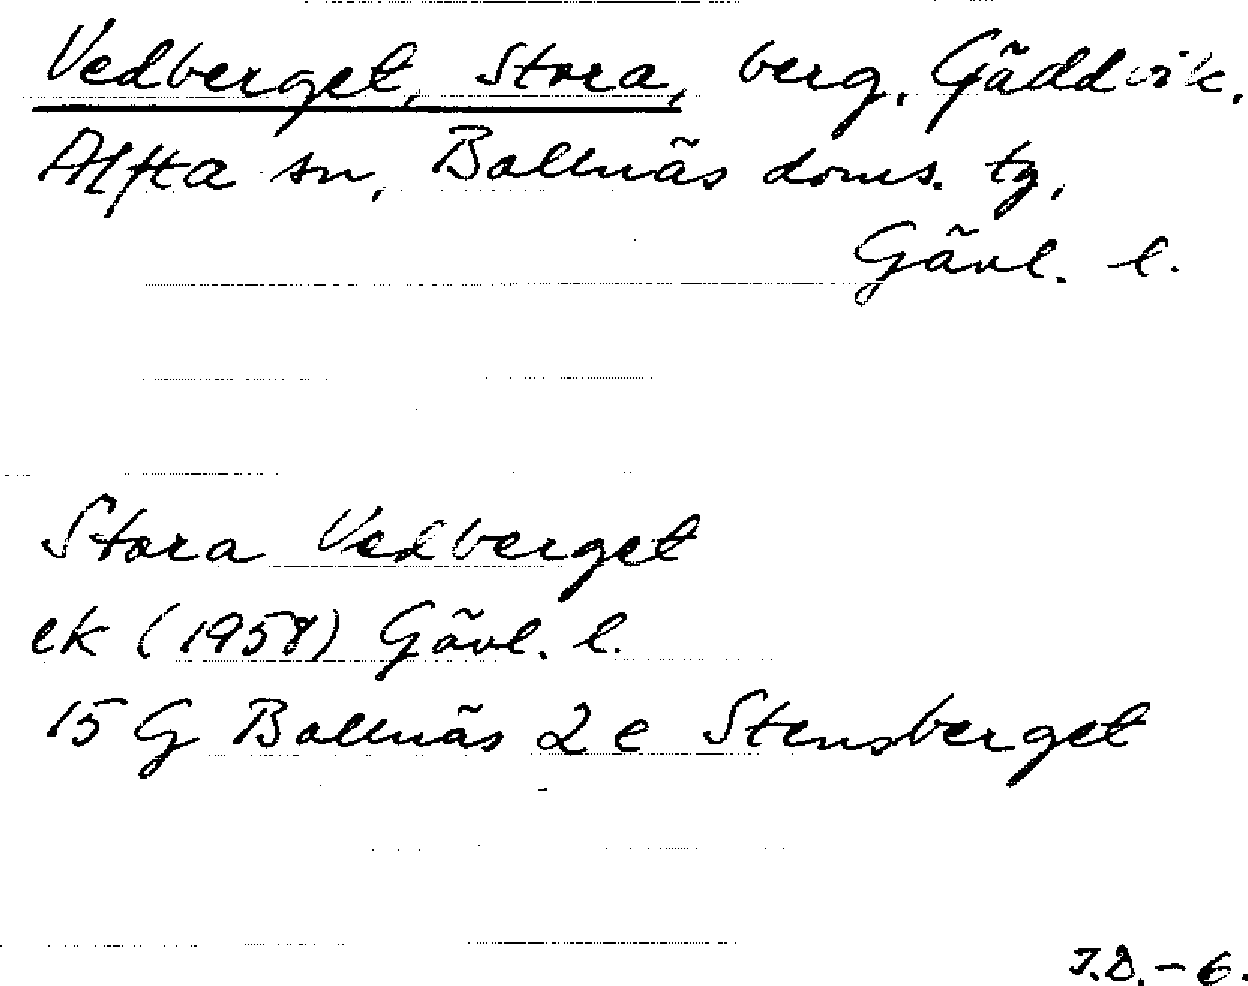 Vedberget, Stora, berg. Gäddvik.
Alfta sn, Bollnäs doms. tg,
Gävl. l.
Stora Vedberget
ek (1958) Gävl. l.
15 G Bollnäs 2 e Stensberget